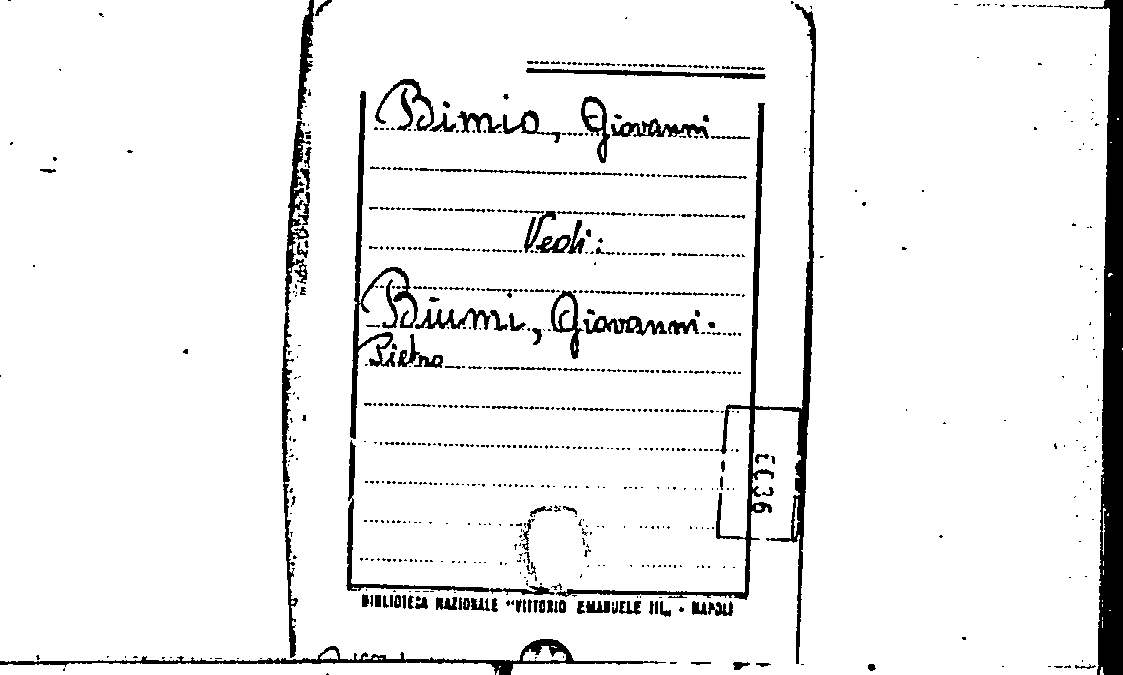 Bimio, Giovanni
Vedi:
Biumi, Giovanni-
Pietro
BIBLIOTECA NAZIONALE "VITTORIO EMANUELE III„ - NAPOLI